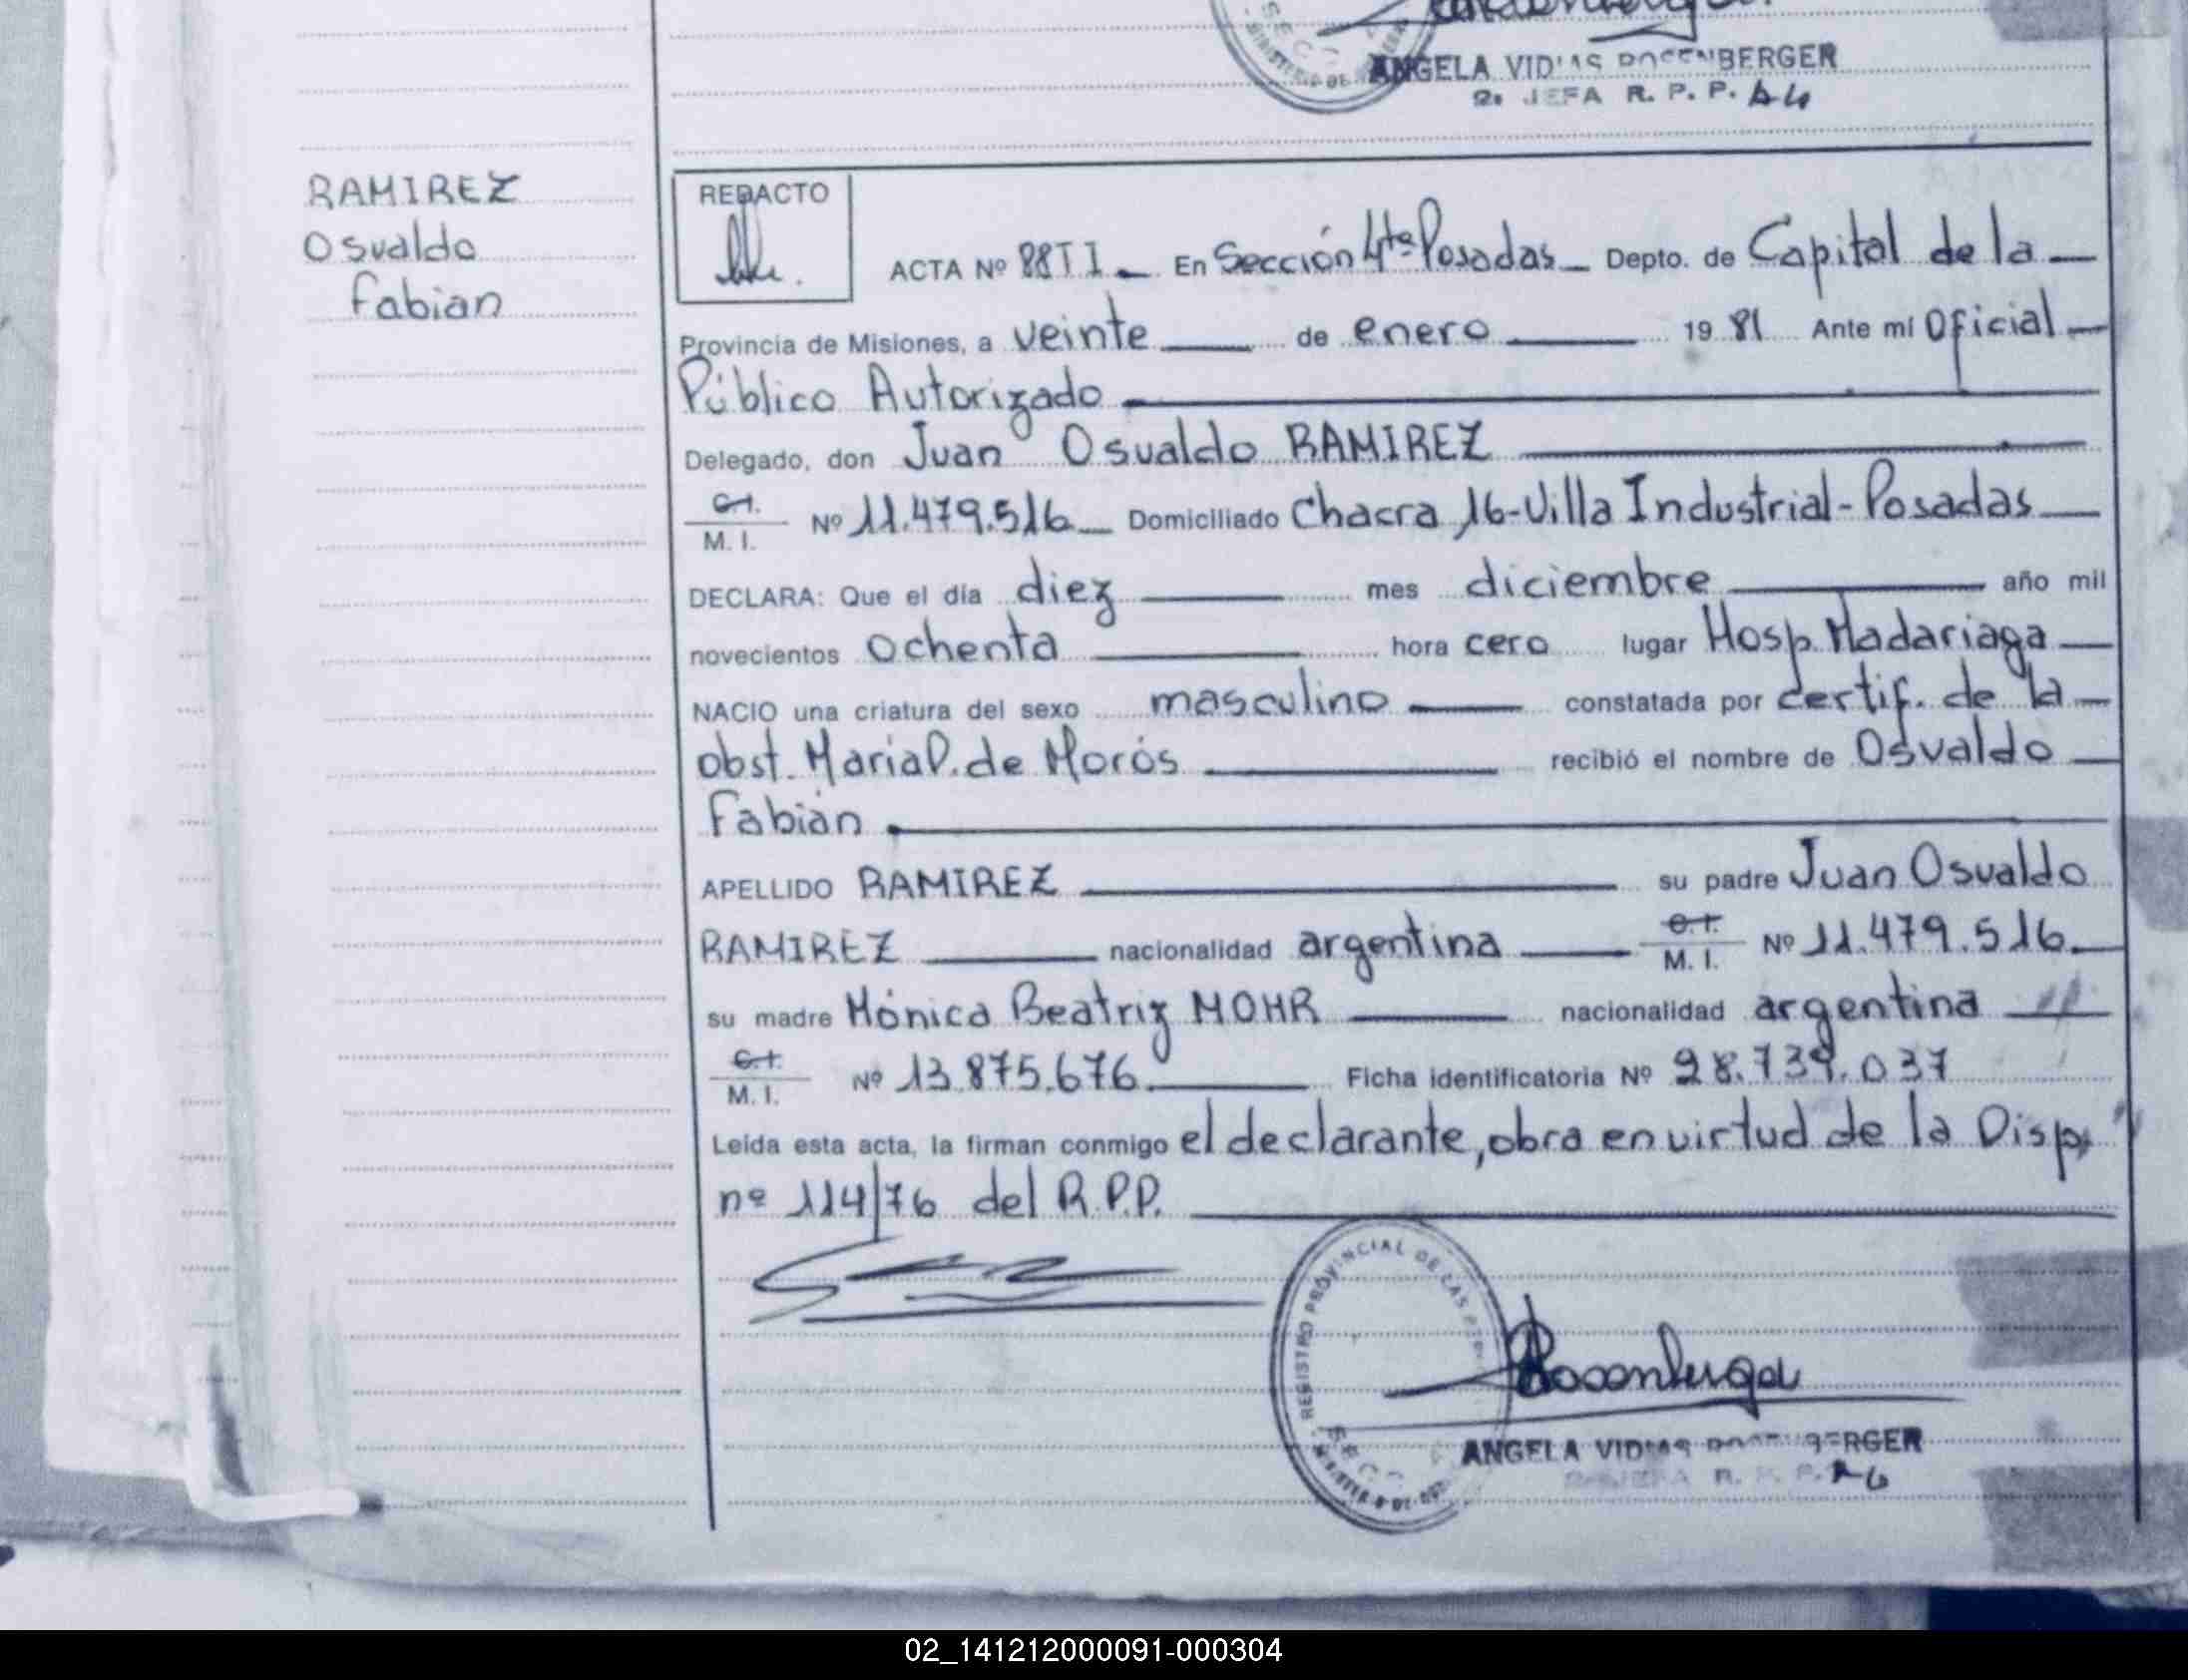 ANGELA VIDMAS ROSENBERGER
2a JEFA R. P. P.
RAMIREZ
Osvaldo
Fabian
REDACTO
ACTA Nº 88 T I En Sección 4ta Posadas Depto. de Capital de la
Provincia de Misiones, a veinte de enero 19 81 Ante mí Oficial
Público Autorizado
Delegado, don Juan Osvaldo RAMIREZ
C.I.
M. I. Nº 11.479.516 Domiciliado Chacra 16-Villa Industrial-Posadas
DECLARA: Que el día diez mes diciembre año mil
novecientos ochenta hora cero lugar Hosp. Madariaga
NACIO una criatura del sexo masculino constatada por certif. de la
obst. Maria P. de Morós recibió el nombre de Osvaldo
Fabián
APELLIDO RAMIREZ su padre Juan Osvaldo
RAMIREZ nacionalidad argentina C.I. M. I. Nº 11.479.516.
su madre Mónica Beatriz MOHR nacionalidad argentina
C.I.
M. I. Nº 13.875.676. Ficha identificatoria Nº 28.739.037
Leída esta acta, la firman conmigo el declarante, obra en virtud de la Disp.
nº 114/76 del R.P.P.
REGISTRO PROVINCIAL DE LAS
SECC
Rosenberger
ANGELA VIDMAS ROSENBERGER
JEFA R. P. P.
02_141212000091-000304